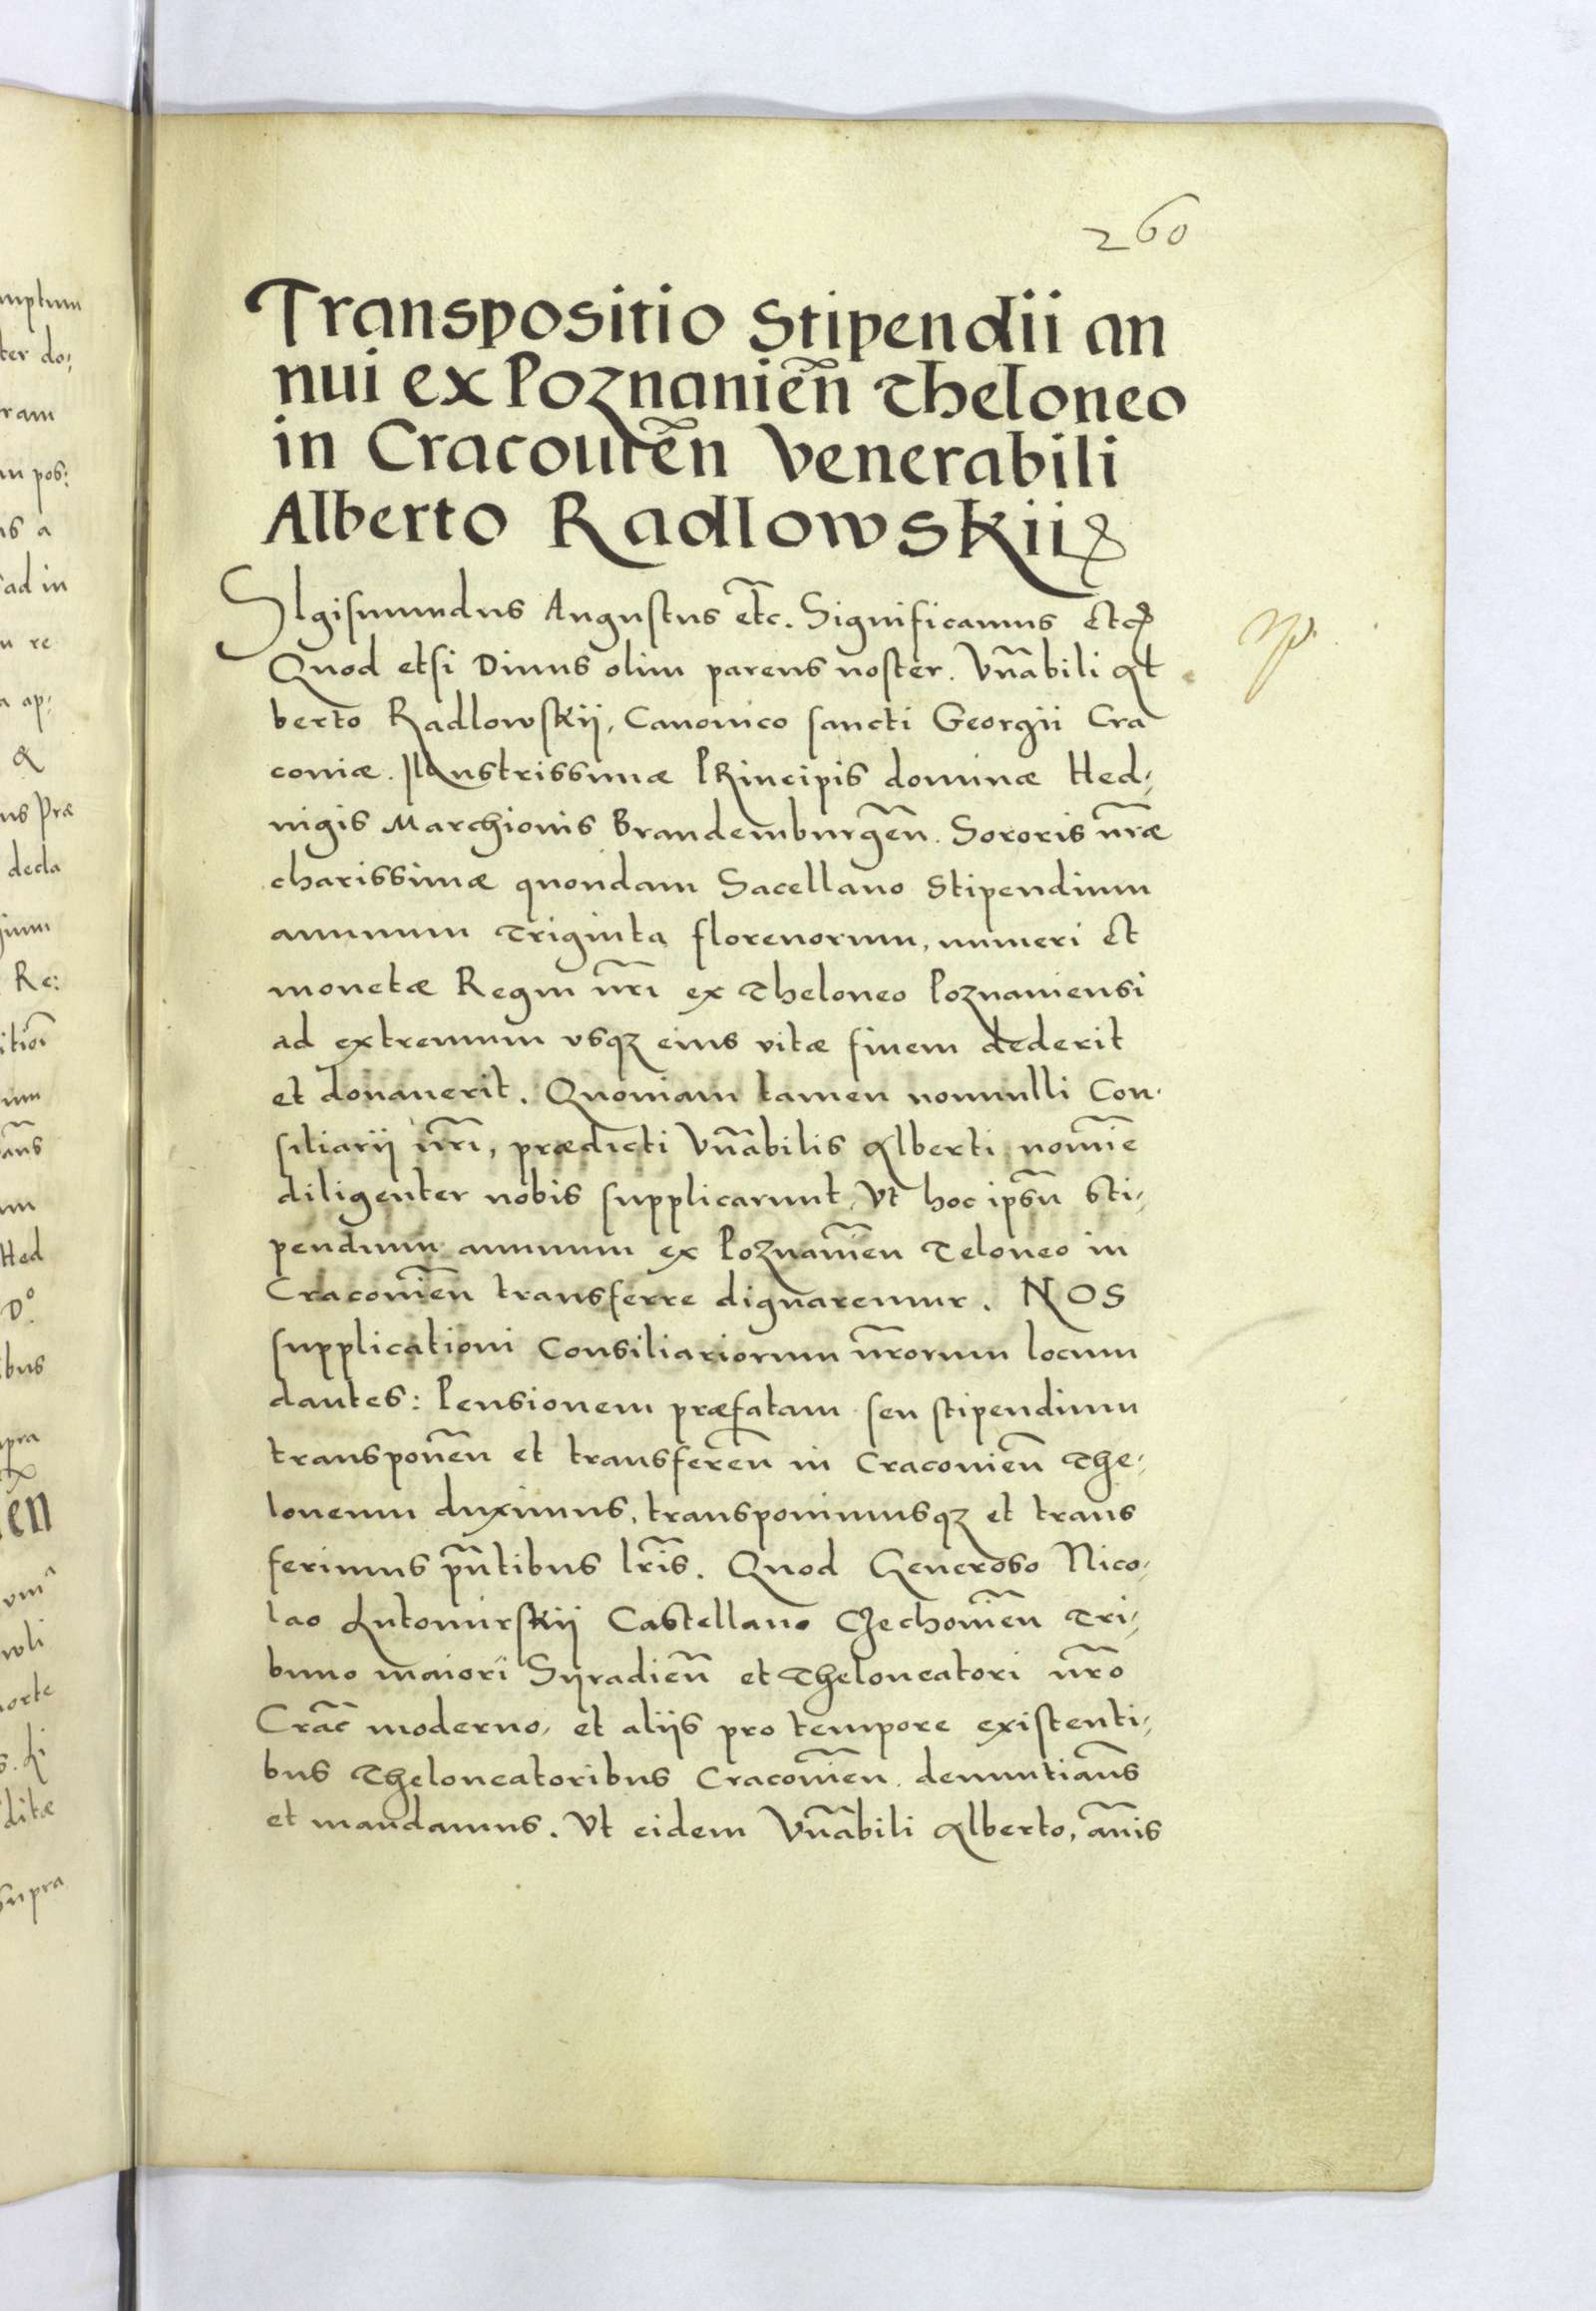 260
Transpositio Stipendii an
nui ex Poznanien̄ Theloneo
in Cracouien̄ Venerabili
Alberto Radlowskii
SIgismundus Augustus etc̄. Significamus etc
Quod etsi Diuus olim parens noster. Vn̄abili Al
berto Radlowskij, Canonico sancti Georgii Cra
couiæ. Illustrissimæ PRincipis dominæ Hed,
uigis Marchionis Brandemburgen̄. Sororis nr̄æ
charissimæ quondam Sacellano Stipendium
annuum Triginta florenorum, numeri et
monetæ Regni nr̄i ex Theloneo Poznaniensi
ad extremum usqz eius vitæ finem dederit
et donauerit. Quoniam tamen nonnulli Con,
siliarij nr̄i, prædicti Vn̄abilis Alberti nomīe
diligenter nobis supplicarunt, Vt hoc ips̄ū Sti,
pendium annuum ex Poznanien̄ Teloneo in
Cracouien̄ transferre dignaremur. NOS
supplicationi Consiliariorum nr̄orum locum
dantes: Pensionem præfatam seu stipendium
transponen̄ et transferen̄ in Cracouien̄ The,
loneum duximus, transponimusqz et trans
ferimus pn̄tibus lr̄is. Quod Generoso Nico,
lao Lutomirskij Castellano Czechouien̄ Tri,
buno maiori Syradien̄ et Theloneatori nr̄o
Crac̄ moderno, et alijs pro tempore existenti,
bus Theloneatoribus Cracouien̄. denuntiam̄s
et mandamus. Vt eidem Vn̄abili Alberto, an̄is